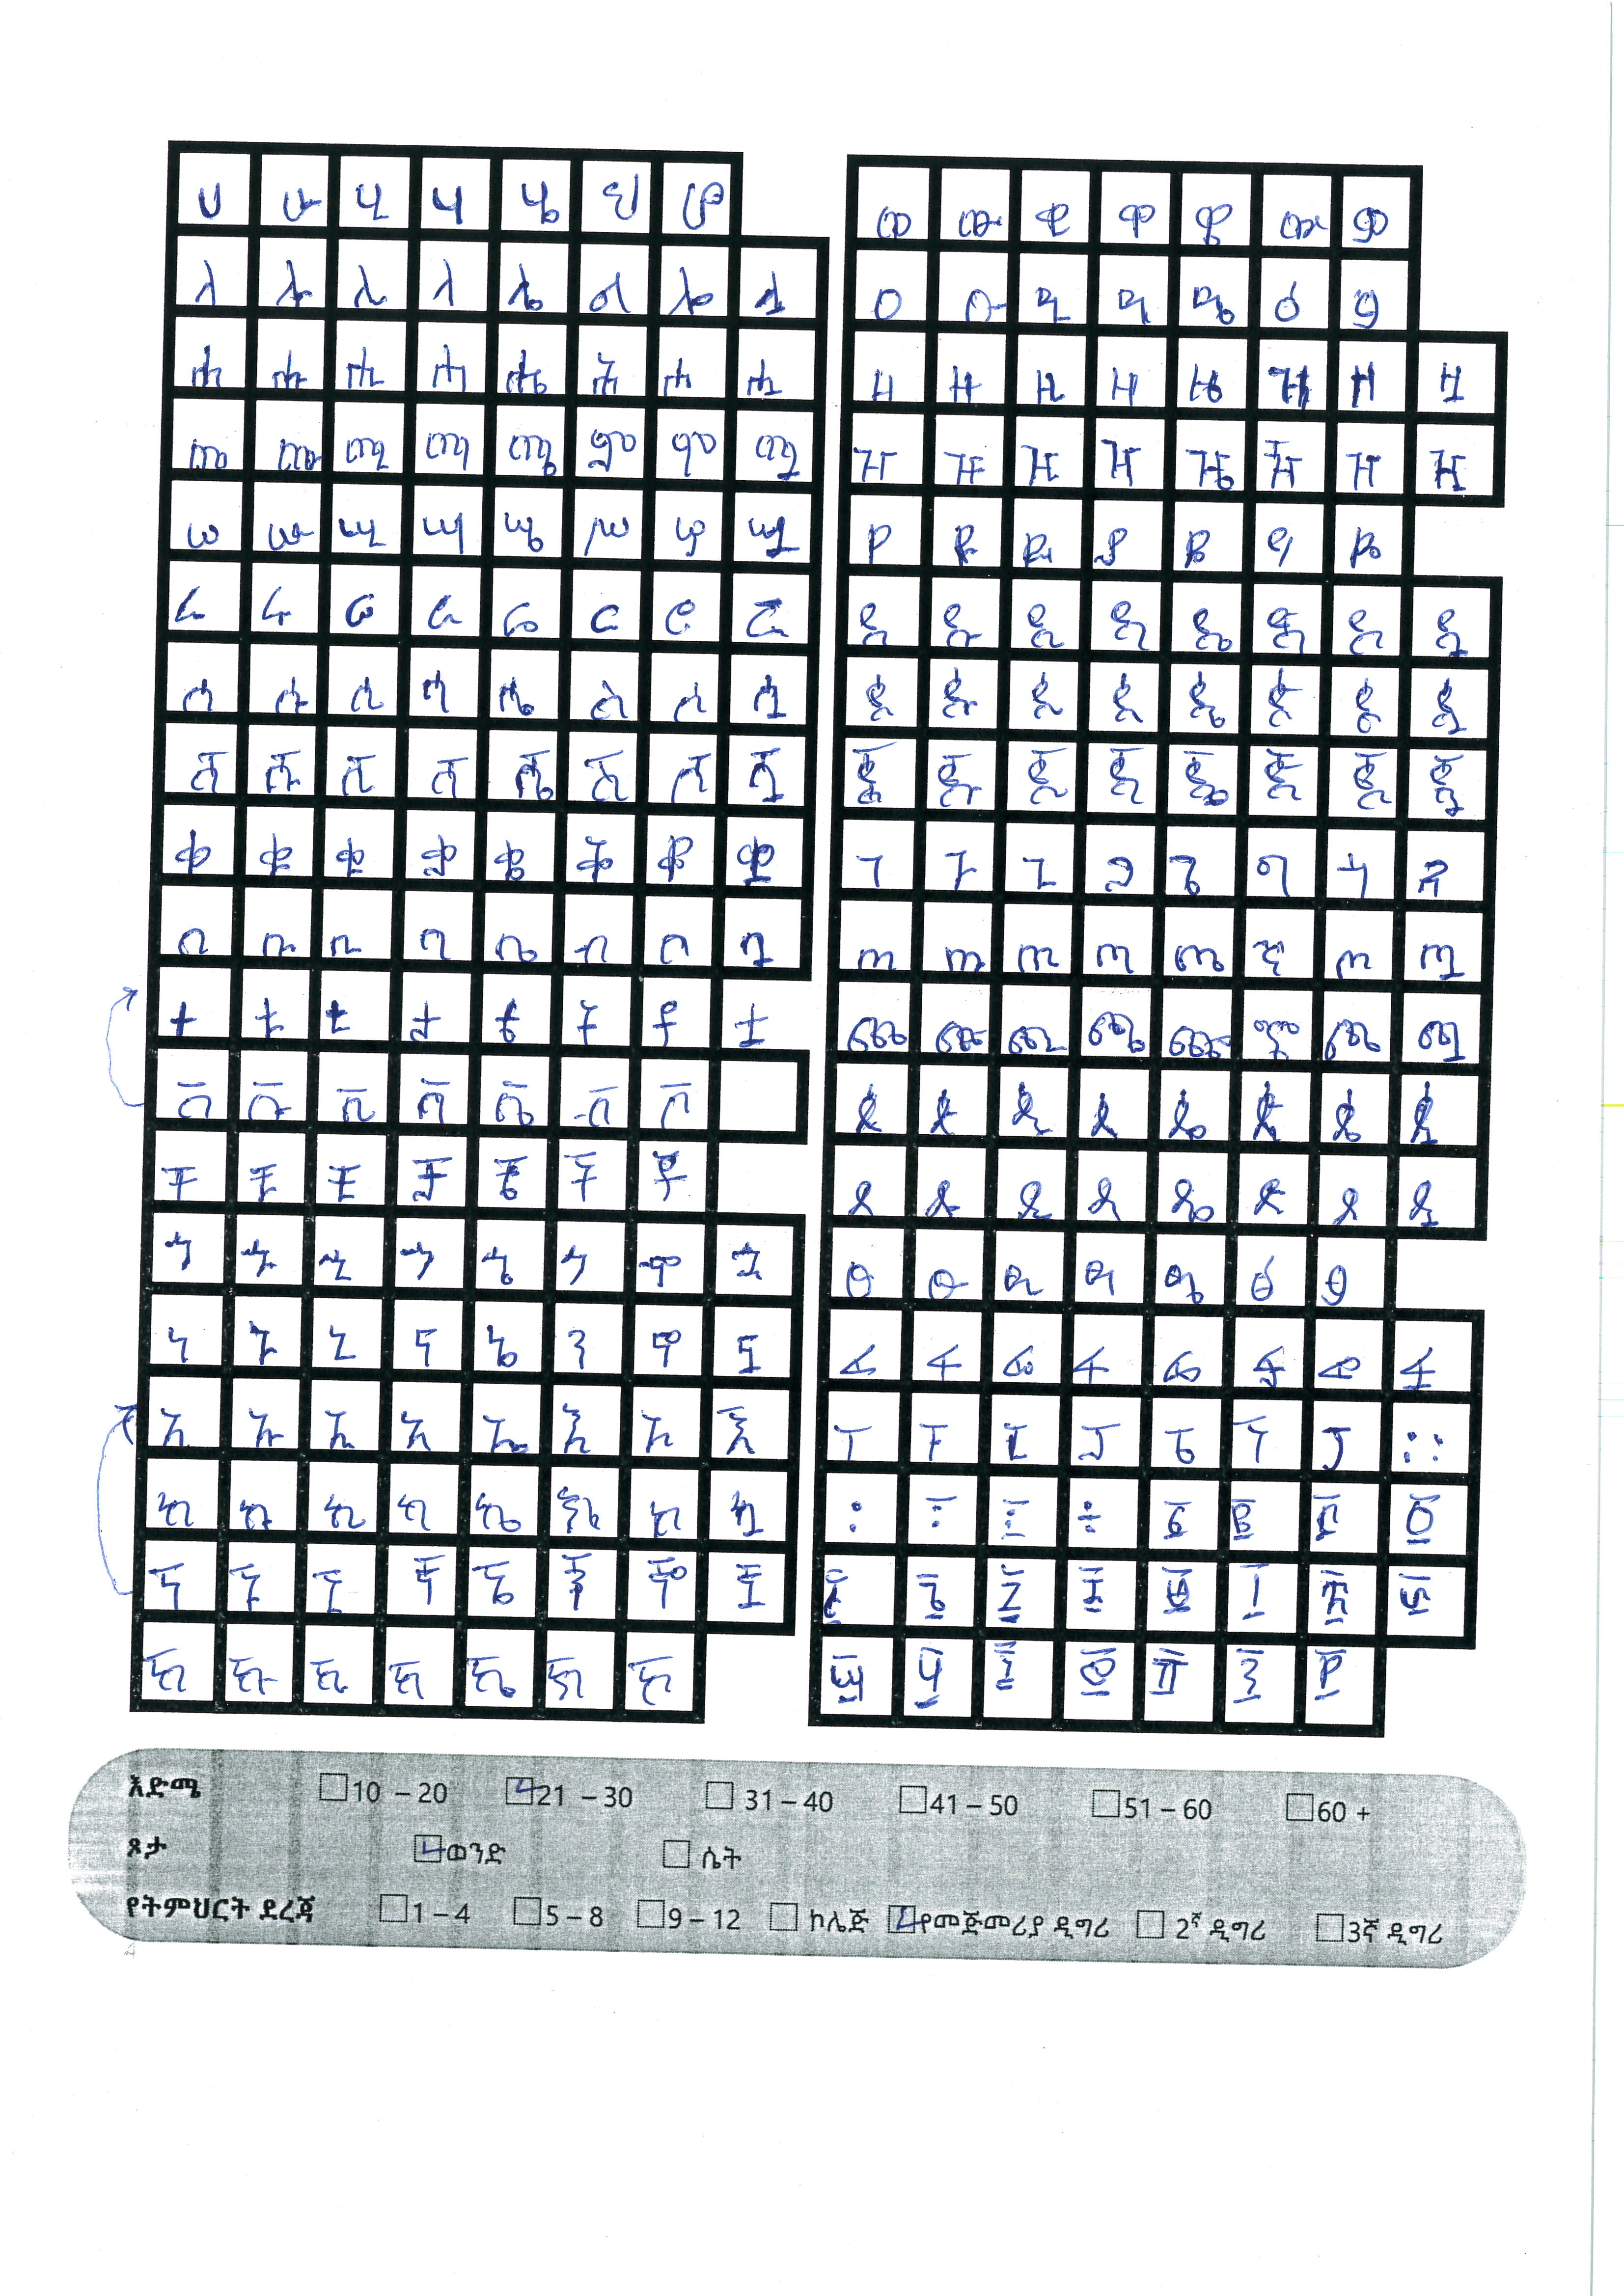 ሀ ሁ ሂ ሃ ሄ ህ ሆ
ለ ሉ ሊ ላ ሌ ል ሎ ሏ
ሐ ሑ ሒ ሓ ሔ ሕ ሖ ሗ
መ ሙ ሚ ማ ሜ ም ሞ ሟ
ሠ ሡ ሢ ሣ ሤ ሥ ሦ ሧ
ረ ሩ ሪ ራ ሬ ር ሮ ሯ
ሰ ሱ ሲ ሳ ሴ ስ ሶ ሷ
ሸ ሹ ሺ ሻ ሼ ሽ ሾ ሿ
ቀ ቁ ቂ ቃ ቄ ቅ ቆ ቋ
በ ቡ ቢ ባ ቤ ብ ቦ ቧ
ተ ቱ ቲ ታ ቴ ት ቶ ቷ
ቨ ቩ ቪ ቫ ቬ ቭ ቮ
ቸ ቹ ቺ ቻ ቼ ች ቾ
ኀ ኁ ኂ ኃ ኄ ኅ ኆ ኋ
ነ ኑ ኒ ና ኔ ን ኖ ኗ
አ ኡ ኢ ኣ ኤ እ ኦ ኧ
ከ ኩ ኪ ካ ኬ ክ ኮ ኳ
ኘ ኙ ኚ ኛ ኜ ኝ ኞ ኟ
ኸ ኹ ኺ ኻ ኼ ኽ ኾ
ወ ዉ ዊ ዋ ዌ ው ዎ
ዐ ዑ ዒ ዓ ዔ ዕ ዖ
ዘ ዙ ዚ ዛ ዜ ዝ ዞ ዟ
ዠ ዡ ዢ ዣ ዤ ዥ ዦ ዧ
የ ዩ ዪ ያ ዬ ይ ዮ
ደ ዱ ዲ ዳ ዴ ድ ዶ ዷ
ጰ ጱ ጲ ጳ ጴ ጵ ጶ ጷ
ጀ ጁ ጂ ጃ ጄ ጅ ጆ ጇ
ገ ጉ ጊ ጋ ጌ ግ ጎ ጓ
ጠ ጡ ጢ ጣ ጤ ጥ ጦ ጧ
ጨ ጩ ጪ ጫ ጬ ጭ ጮ ጯ
ጸ ጹ ጺ ጻ ጼ ጽ ጾ ጿ
ፀ ፁ ፂ ፃ ፄ ፅ ፆ
ፈ ፉ ፊ ፋ ፌ ፍ ፎ ፏ
ፐ ፑ ፒ ፓ ፔ ፕ ፖ ።
፡ ፣ ፤ ፥ ፩ ፪ ፫ ፬
፭ ፮ ፯ ፰ ፱ ፲ ፳ ፴
፵ ፶ ፷ ፸ ፹ ፺ ፻
እድሜ 10 – 20 21 – 30 31 – 40 41 – 50 51 – 60 60 +
ጾታ ወንድ ሴት
የትምህርት ደረጃ 1 – 4 5 – 8 9 – 12 ኮሌጅ የመጅመሪያ ዲግሪ 2ኛ ዲግሪ 3ኛ ዲግሪ